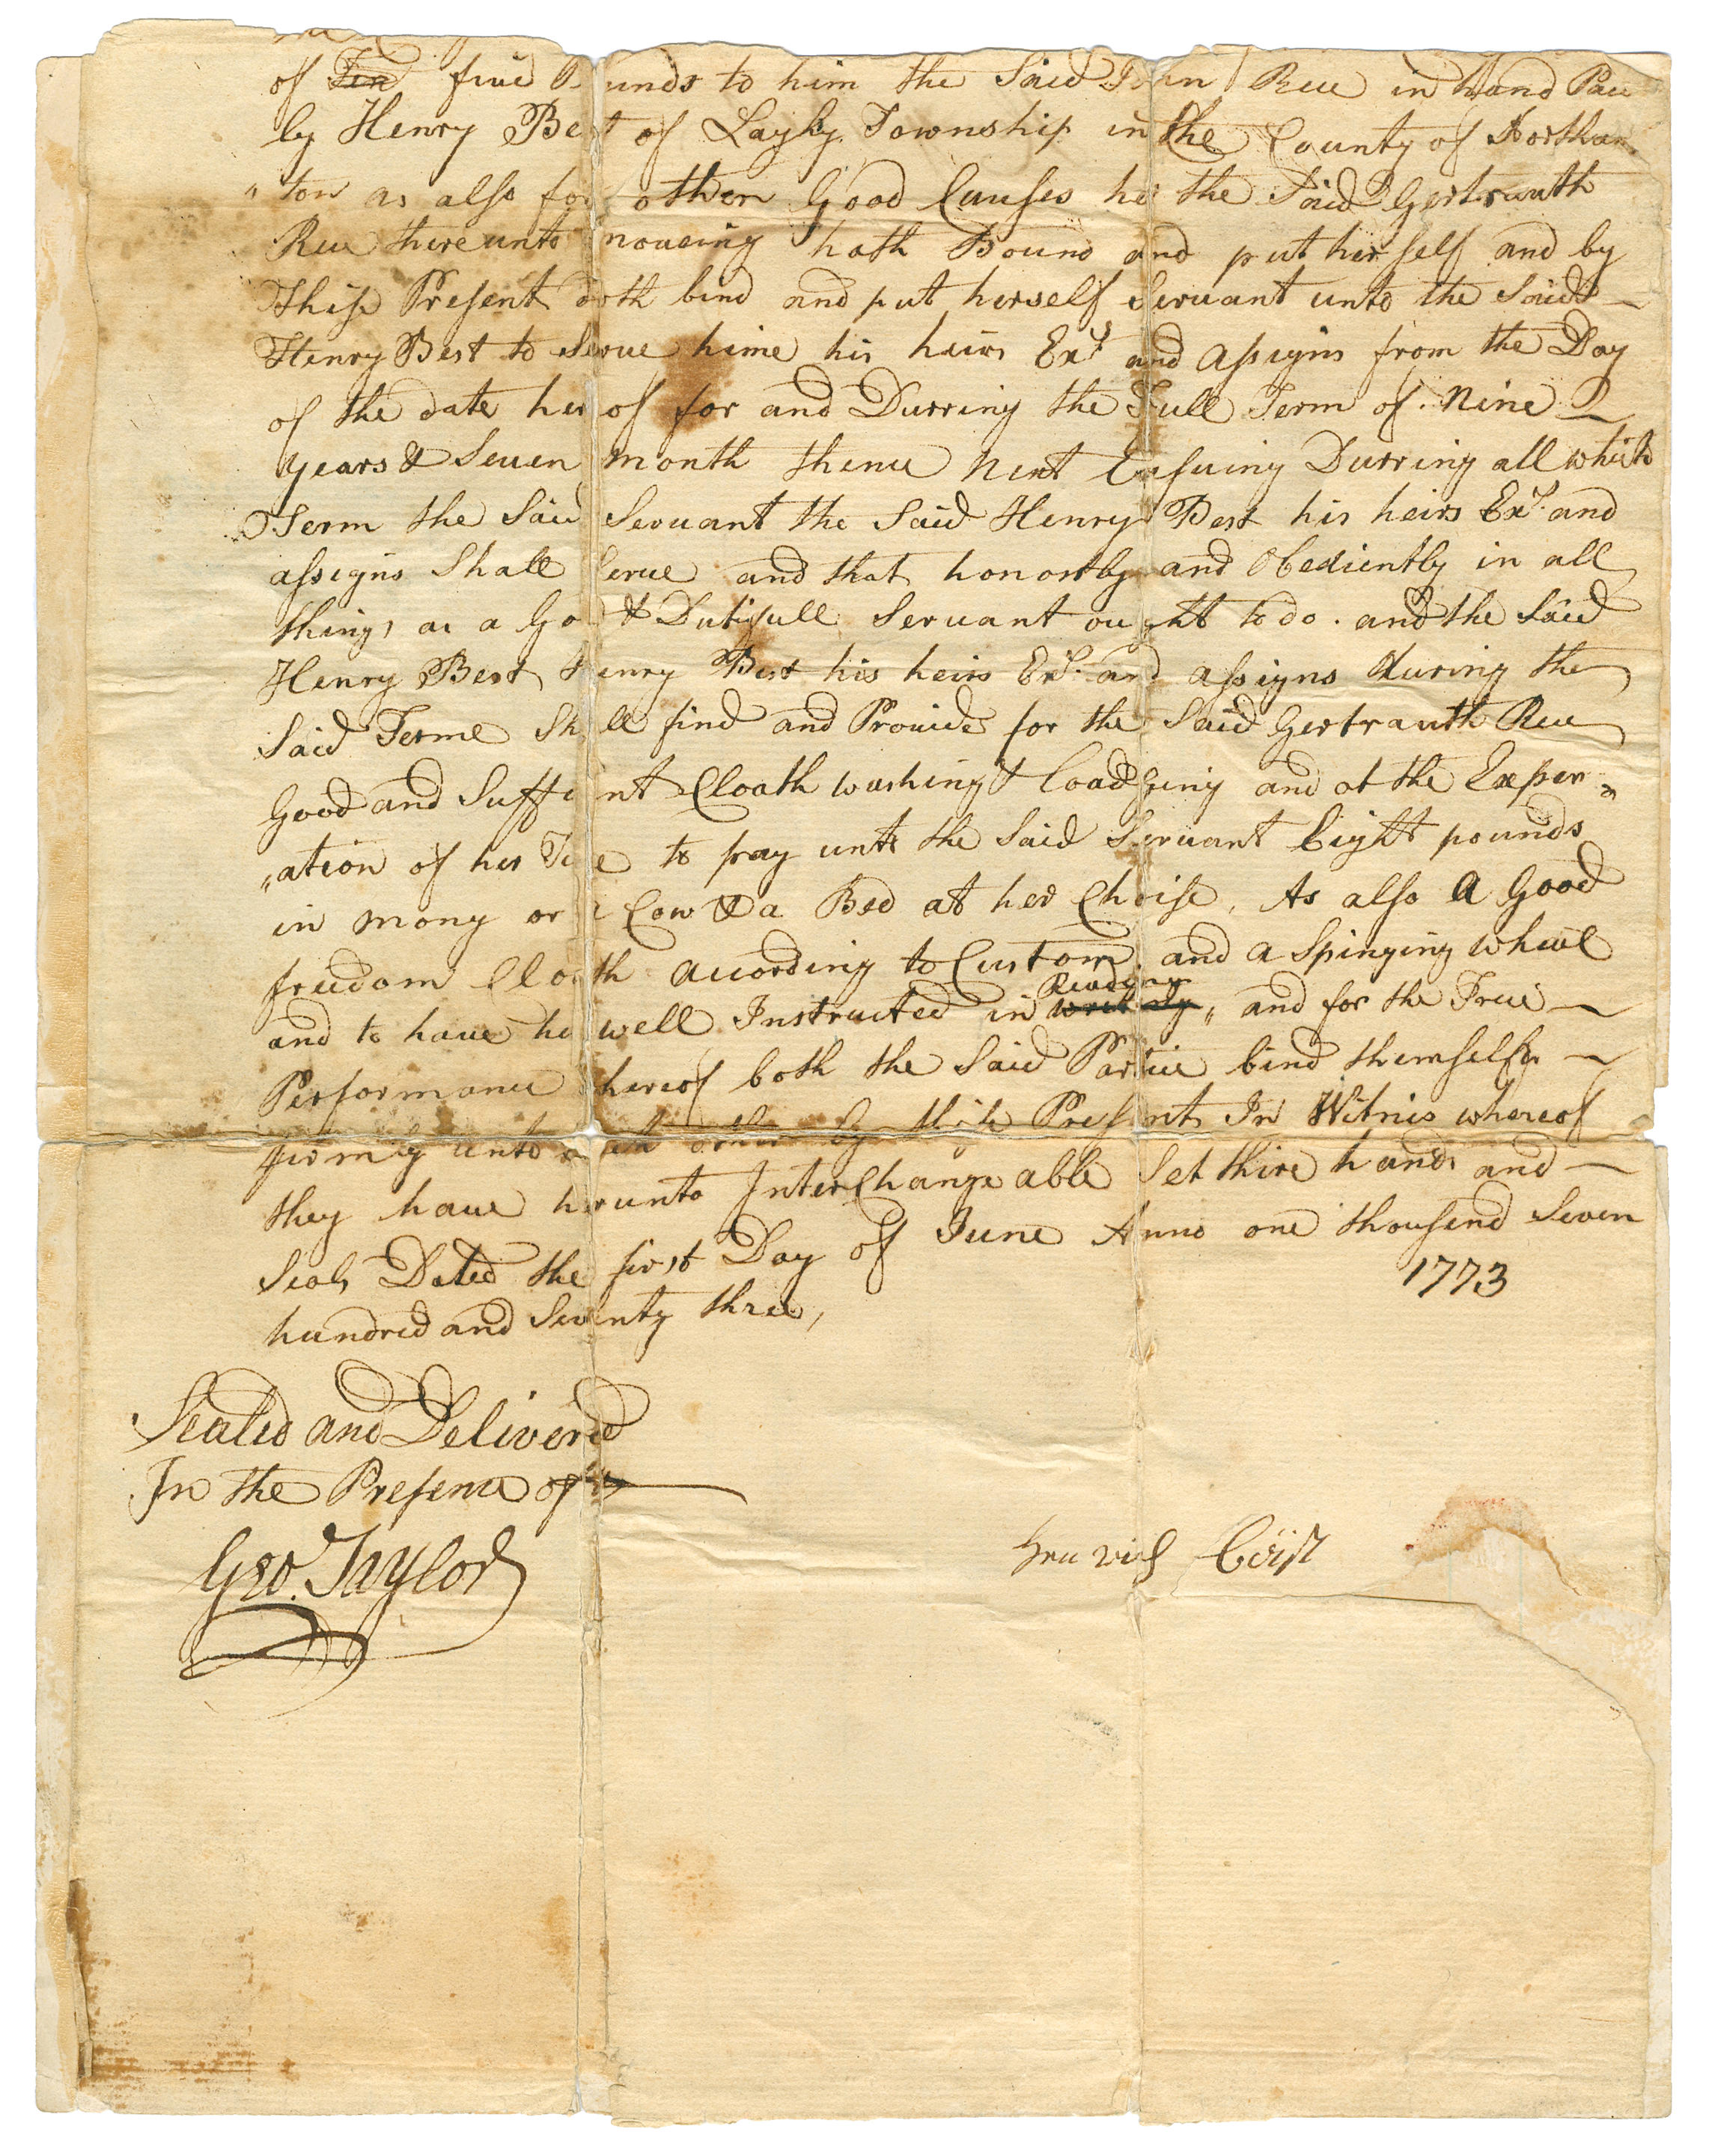 of Ten five Pounds to him the Said John Rue in hand Pai
by Henry Best of Township in the County of Northam
"ton as also for other Good Causes her the Said Gertrauth
Rue thereunto moveing hath Bound and put her self and by
this Present doth bind and put herself Servant unto the Said
Henry Best to Serve hime his heirs Exs. and assigns from the Day
of the date herof for and Durring the Full Term of Nine
years & Seven month thence Next Ensuing Durring all which
Term the Said Servant the Said Henry Best his heirs Exs. and
assigns Shall Serve and that honostly and Obediently in all
things as a Good & Dutifull Servant ought to do. and the Said
Henry Best Henry Best his heirs Exs. and assigns during the
Said Terme Shall find and Provide for the Said Gertrauth Rue
Good and Suffient Cloath washing & Loadging and at the Exper„
„ation of her Time to pay unto the Said Servant Eight pounds
in mony or a Cow & a Bed at her Choise, As also a Good
freedom Cloath according to Custom and a Spinging wheel
and to have her well Instructed in writing Reading „ and for the True
Performance thereof both the Said Partie bind themselfs
firmly unto each other by this Present In Witnis whereof
they have herunto InterChange able Set thire hands and
Seals Dated the first Day of June Anno one thousend Seven
hundred and Seventy three, 1773
Sealed and Delivered
In the Presence of us
Geo. Taylor
Henrich Börst